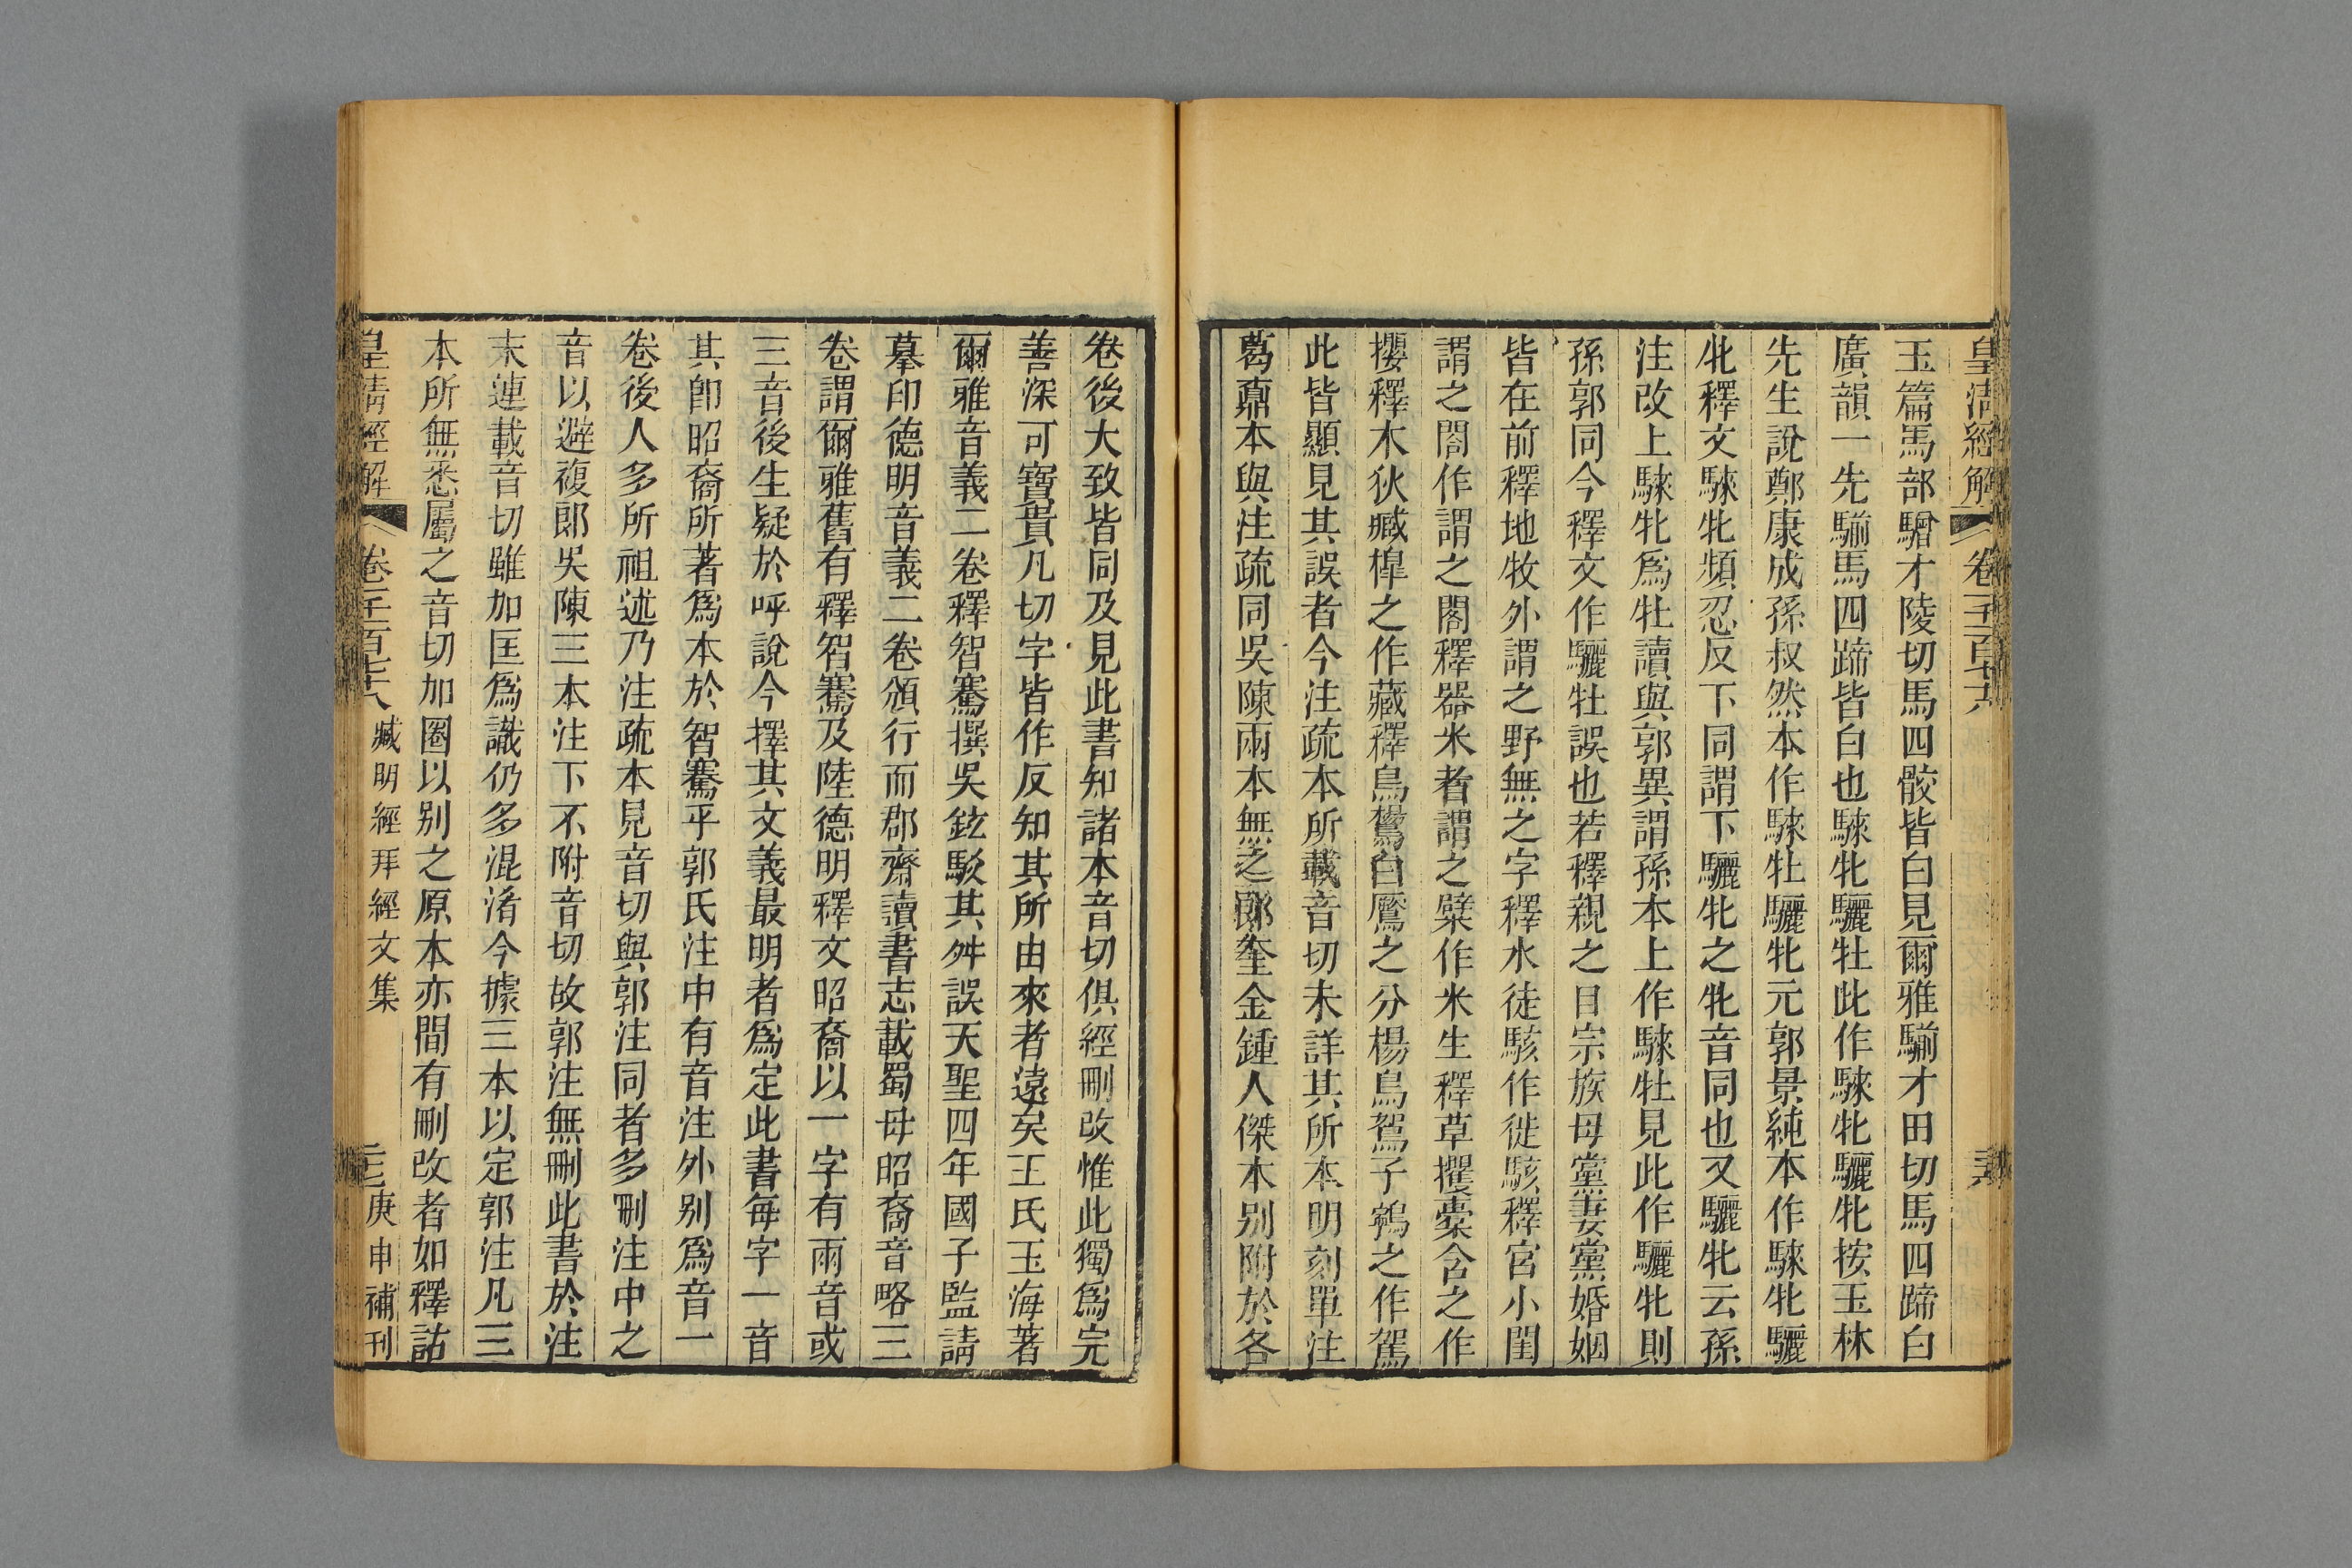 皇清經解 卷千一百七十八
玉篇馬部驓才陵切馬四骹皆白見爾雅騚才田切馬四蹄白
廣韻一先騚馬四蹄皆白也騋牝驪牡此作騋牝驪牝按玉林
先生說鄭康成孫叔然本作騋牡驪牝元郭景純本作騋牝驪
牝釋文騋牝頻忍反下同謂下驪牝之牝音同也又驪牝云孫
注改上騋牝爲牡讀與郭異謂孫本上作騋牡見此作驪牝則
孫郭同今釋文作驪牡誤也若釋親之目宗族母黨妻黨婚姻
皆在前釋地牧外謂之野無之字釋水徒駭作徙駭釋宮小閨
謂之閤作謂之閣釋器米者謂之糪作米生釋草攫橐含之作
攖釋木狄臧槔之作藏釋鳥鸉白鷢之分楊鳥鴽子鳼之作駕
此皆顯見其誤者今注疏本所載音切未詳其所本明刻單注
葛鼒本與注疏同吳陳兩本無之郞奎金鍾人傑本別附於各
卷後大致皆同及見此書知諸本音切俱經刪改惟此獨爲完
善深可寶貴凡切字皆作反知其所由來者遠矣王氏玉海著
爾雅音義二卷釋智騫撰吳鉉駁其舛誤天聖四年國子監請
摹印德明音義二卷頒行而郡齋讀書志載蜀毋昭裔音略三
卷謂爾雅舊有釋智騫及陸德明釋文昭裔以一字有兩音或
三音後生疑於呼說今擇其文義最明者爲定此書每字一音
其卽昭裔所著爲本於智騫乎郭氏注中有音注外別爲音一
卷後人多所祖述乃注疏本見音切與郭注同者多刪注中之
音以避複郞吳陳三本注下不附音切故郭注無刪此書於注
末連載音切雖加匡爲識仍多混淆今據三本以定郭注凡三
本所無悉屬之音切加圈以別之原本亦間有刪改者如釋詁
皇清經解 卷千一百七十八 臧明經拜經文集 庚申補刊